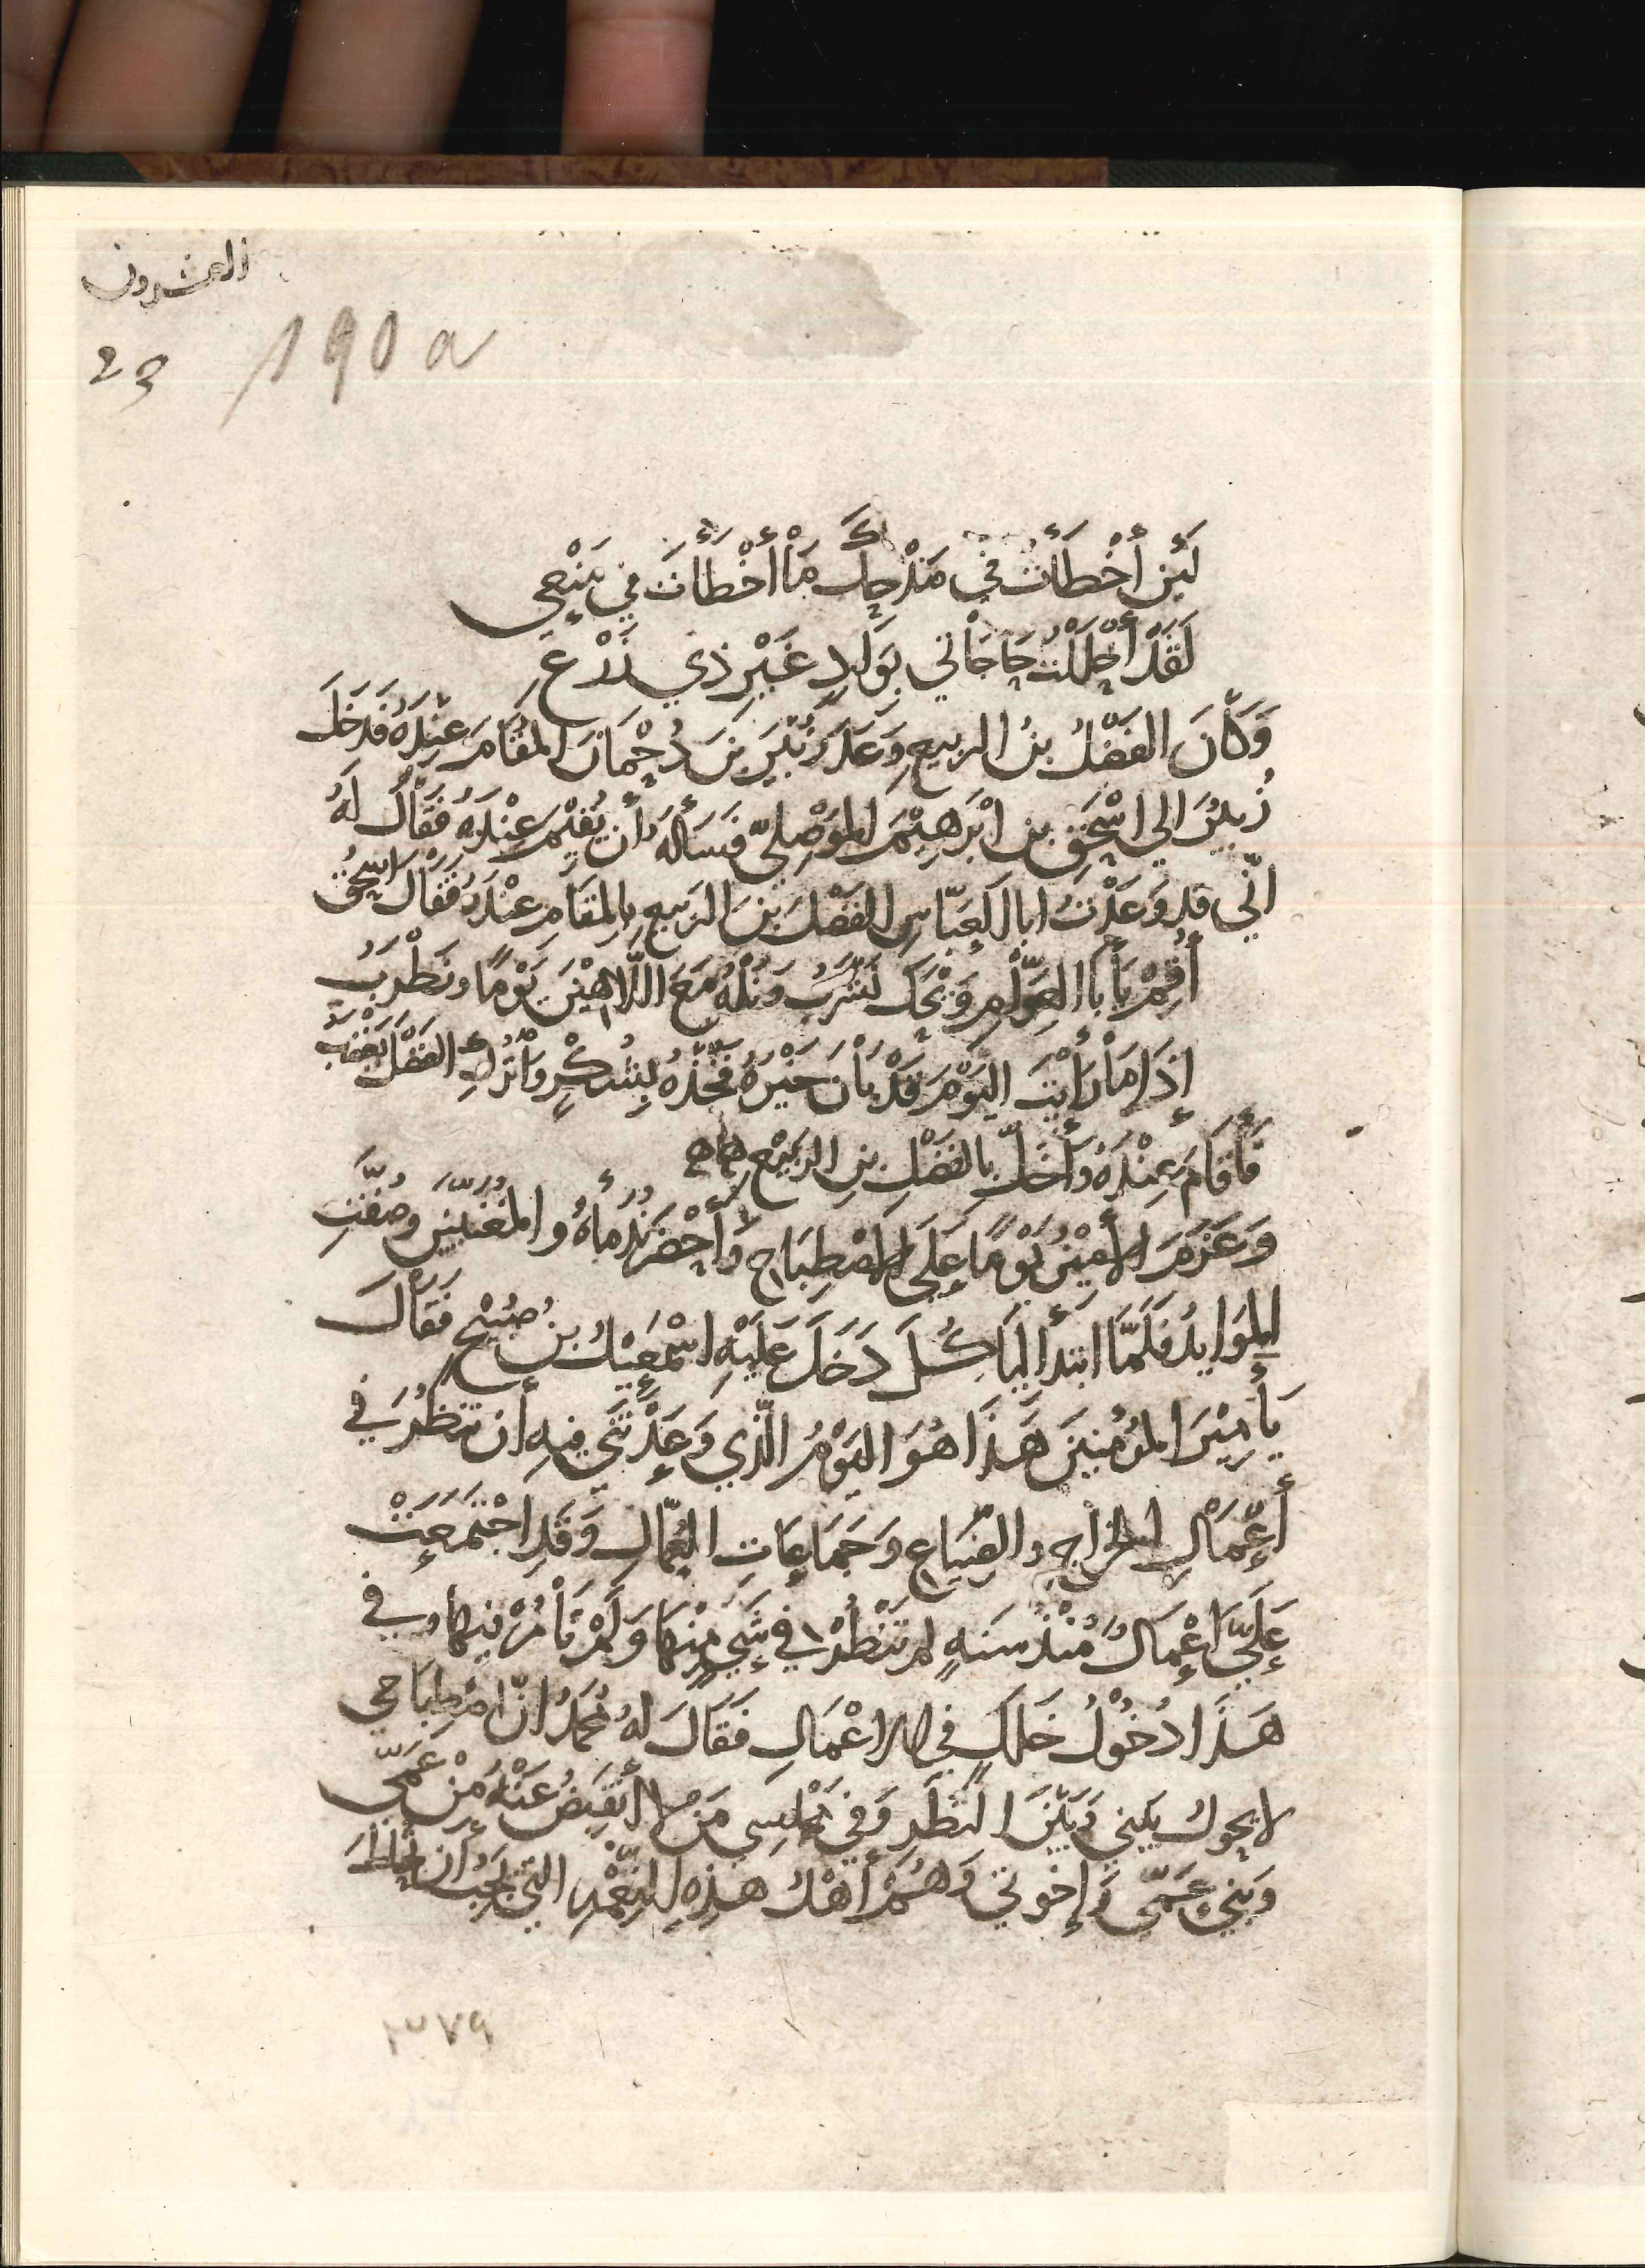 العشرون
23 190 a
لَئِن أَخْطَأْتُ فِي مَدْحِكَ مَا أَخْطَأْتَ فِي مَنْعِي
لَقَدْ أَحْلَلْتُ حَاجَاتِي بِوَادٍ غَيْرِ ذِي زَرْعٍ
وَكَانَ الفَضْلُ بنُ الربيعِ وَعَدَ زُبَيْرَ بنَ دُحْمَانَ المُقَامَ عِنْدَهُ فَدَخَلَ
زُبَيْرٌ الي اسْحَقَ بنِ ابْرَهِيْمَ المَوْصِلِيّ فَسَأَلَهُ أَن يُقِيْمَ عِنْدَهُ فَقَالَ لَهُ
انّي قد وَعَدْتُ ابا العَبّاسِ الفَضْلَ بنَ الرّبيعِ بِالمقَامِ عِنْدَهُ فَقَالَ اسْحَقُ
أَقِمْ يَا أَبَا العَوّامِ وَيْحَكَ نَشْرَبُ وَنَلْهُ مَعَ اللَّاهِيْنَ يَوْمًا وَنَطْرَبُ
إِذَا مَا رَأَيْتَ اليَوْمَ قَدْ بَانَ خَيْرُهُ فَخُذْهُ بِشُكْرٍ وَاتْرُكِ الفَضْلَ يَغْضَبُ
فَأَقَامَ عِنْدَهُ وَأَخَلَّ بالفَضْلِ بنِ الربِيْعِ
وَعَزَمَ الأَمِيْنُ يَوْمًا عَلَي الاصْطِبَاحِ وَأَحْضَرَ نُدَمَاءَهُ وَالمُغَنّيِيْنَ وَصُفَّتِ
المَوَايدُ فَلَمَّا ابتدأ ليَأكُلَ دَخَلَ عَلَيْهِ اسْمَعِيْلُ بنُ صُبَيْحٍ فَقَالَ
يَا أَمِيْرَ المُؤْمِنِيْنَ هَذَا هُوَ اليَوْمُ الَّذي وَعَدْتَنِي فيهِ أَن تنظُرَ في
أَعْمَالِ الخَرَاجِ والضِّيَاعِ وَجَمَاعَاتِ العُمَّالِ وَقَدِ اجْتَمَعَتْ
عَلَيَّ اعْمَالٌ مُنْذُ سَنَةٍ لم تَنْظُرْ في شَيءٍ مِنْهَا وَلَمْ تَأْمُرْ فيهَا وفي
هَذَا دُخُوْلُ خَلَلٍ في الاعْمَالِ فَقَالَ لهُ مُحَمَّدٌ انَّ اصْطِبَاحي
لا يحول بَيْني وَبَيْنَ النَظَرِ وَفي مَجْلِسِي مَنْ لا أَنْقَبِضُ عَنْهُ مِنْ عَمِّي
وَبَنِي عَمّي وَإِخوتي وَهُمْ أَهْلُ هَذِهِ النِعْمَةِ الّتي يَجِبُ أَن تحَاط
٣٧٩